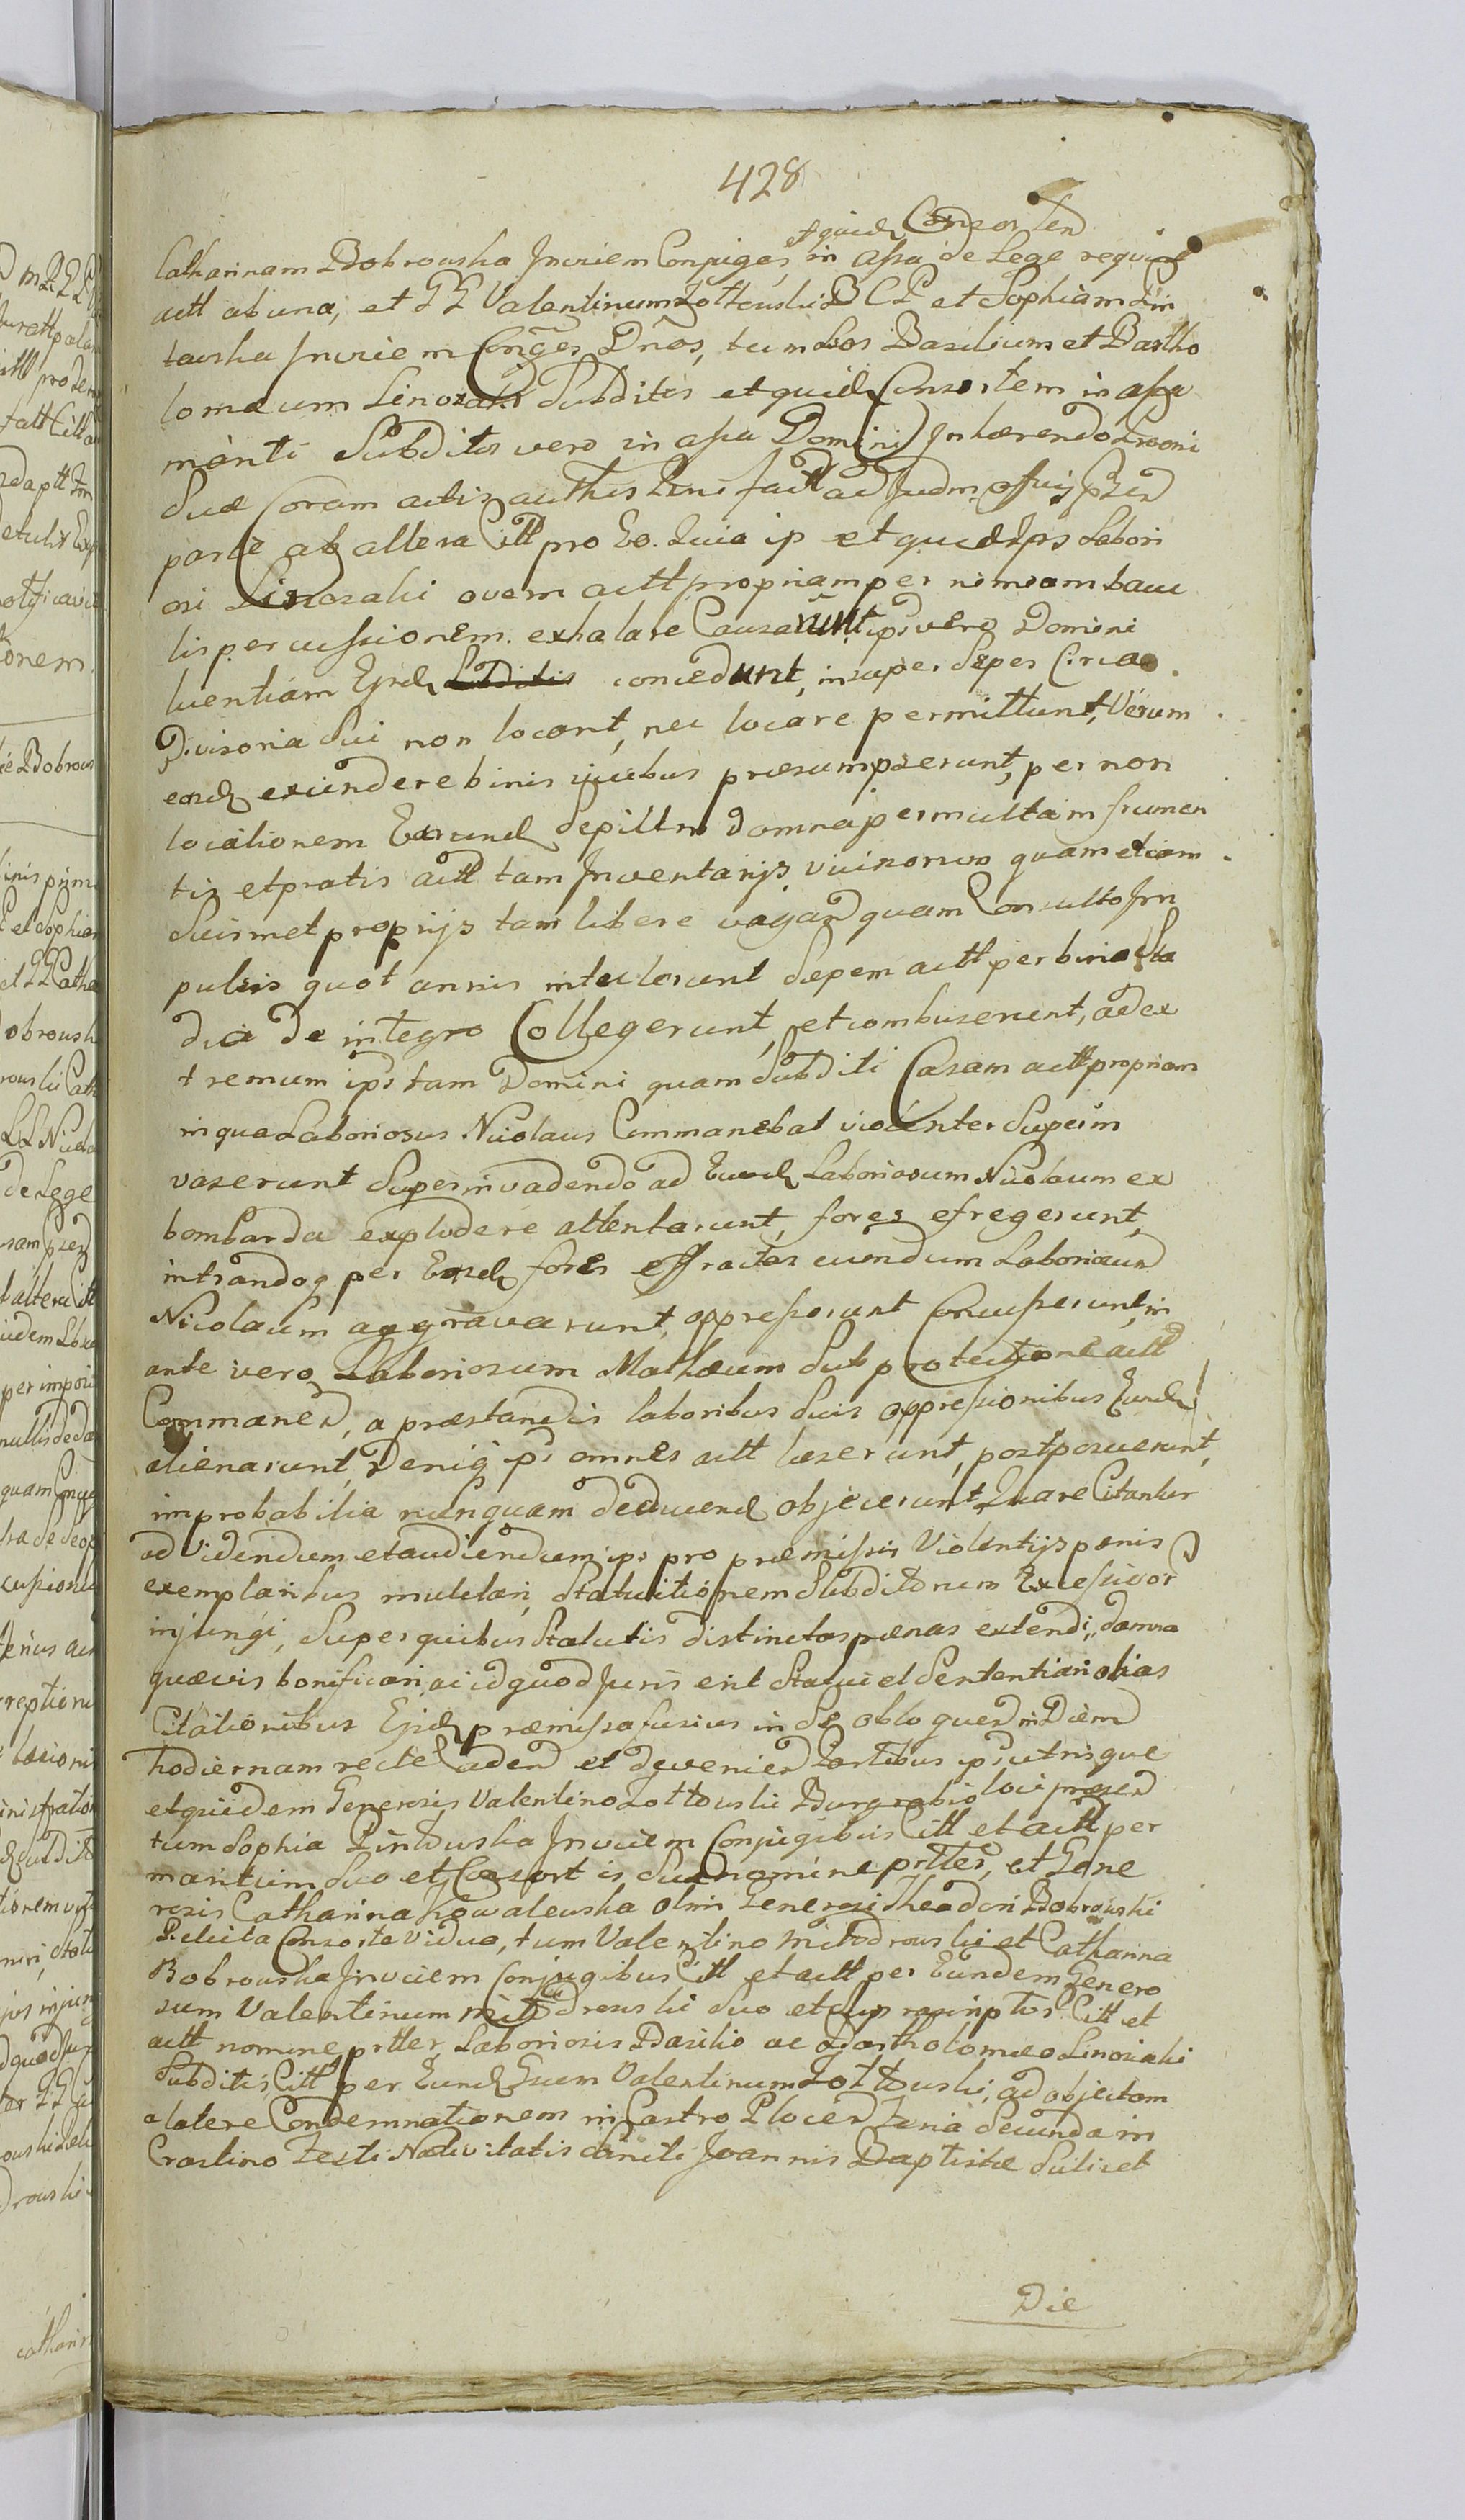 428
et quid Consorten
Catharinam Bobrowska Invicem Conjuges, in assa de Lege requisit
actt ab una, et GG Valentinum Zottowski B C P et Sophiam Lin
towska Invicem Conges Dnos, tum Lbos Basilium et Bartho
lomæum Linozaki Subditos et quid Consortem in assa
mariti Subditos vero in assa Domini Inhærendo
Suæ Coram actis authis fact ad Judm offcij Præsen
parte ab altera Citt pro Eo. Quia ip et quid Ips Labori
osi Linozaki ovem actt propriam per nimiam bacu
lis percussionem exhalare Causarunt, ipsi vero Domini
licentiam Ejsd concedunt, insuper Sepes Circa
Divisoria Sui non locant, nec locare permittunt, Verum
easd exiundere binis vicibus præsumpserunt, per non
locationem Earund Sepium damna permulta in frumen
tis et pratis actt tam Inventarijs vicinorum quam etiam
Suismet proprijs tam libere vagand quam Consulto Im
pulsis quot annis intulerunt Sepem actt per bina Sta
dia de integro Collegerunt, et combuserunt, ad ex
tremum ipsi tam Domini quam Subditi Casam actt propriam
in qua Laboriosus Nicolaus Commanebat violenter Superin
vaserunt Superinvadendo ad Eund Laboriosum Nicolaum ex
bombarda explodere attentarunt, fores efregerunt,
intrandoq per Easd fores effractas eundum Laboriosum
Nicolaum aggravarunt, oppresserunt Concusserunt, in
ante vero Laboriosum Mathæum Sub protectione actt
Commanen, a præstandis laboribus Suis oppressionibus Eund
alienarunt, Deniq ipsi omnes actt læserunt, postposuerunt,
improbabilia nunquam deducend objecerunt, Quare Citantur
ad Videndum et audiendum ips pro præmissis Violentijs pænis
exemplaribus mulctari, Statuitionem Subditorum Excessivor
injungi, Super quibus Statutis distinctas pænas extendi, damna
quævis bonificari, ac id quod Juris erit Statui et Sententiari alias
Citationibus Ejsd præmissa fusius in Se obloquen in Diem
hodiernam recte Caden et devenien Partibus ips utrisque
et quidem Generosis Valentino Zottowski Burgrabio loci præsen
tum Sophia Lintowska Invicem Conjugibus Citt et actt per
maritum Suo et Consortis Suæ nomine prtter, et Gene
rosis Catharina Kowalewska olim Generosi Theodori Bobrowski
Relicta Consorte Vidua, tum Valentino Mitodrowski et Catharina
Bobrowska Invicem Conjugibus Citt et actt per Eundem Genero
sum Valentinum Mitodrowski Suo et Suprascriptor Citt et
actt nomine prtter, Laboriosis Basilio ac Bartholomæo Linozaki
Subditis Citt per Eund Gsum Valentinum Zottowski, ad objectam
a latere Condemnationem in Castro Plocen Feria Secunda in
Crastino Festi Nativitatis Sancti Joannis Baptistæ Scilicet
Die